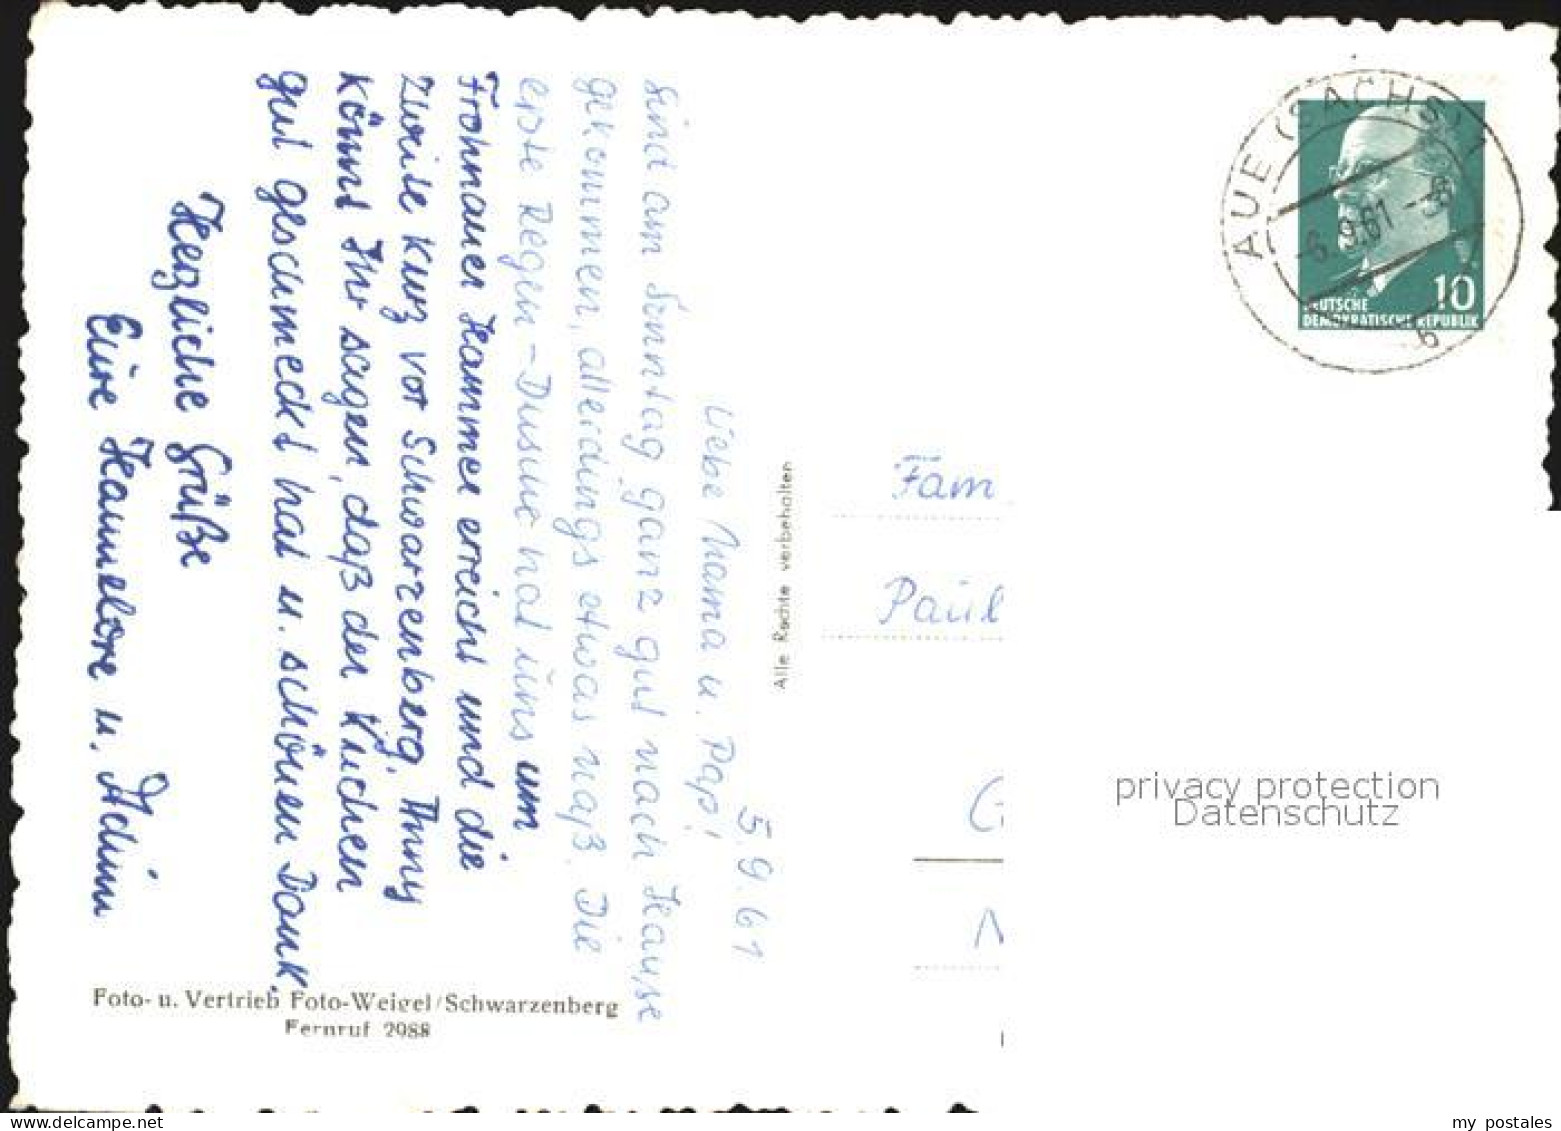 5.9.61
Liebe Mama u. Pap!
sind am Sonntag ganz gut nach Hause
gekommen, allerdings etwas naß. Die
erste Regen-Dusche hat uns um
Frohnauer Hammer erreicht und die
zweite kurz vor Schwarzenberg. Anny
könnt Ihr sagen, daß der Kuchen
gut geschmeckt hat u. schönen Dank.
Herzliche Grüße
Eure Hannelore u. Achim
Foto- u. Vertrieb Foto-Weigel/Schwarzenberg
Fernruf 2988
Alle Rechte verbehalten
AUE (SACHS) 1
-6.9.61
b
10
DEUTSCHE
DEMOKRATISCHE REPUBLIK
Fam
Paul
privacy protection
Datenschutz
my postales